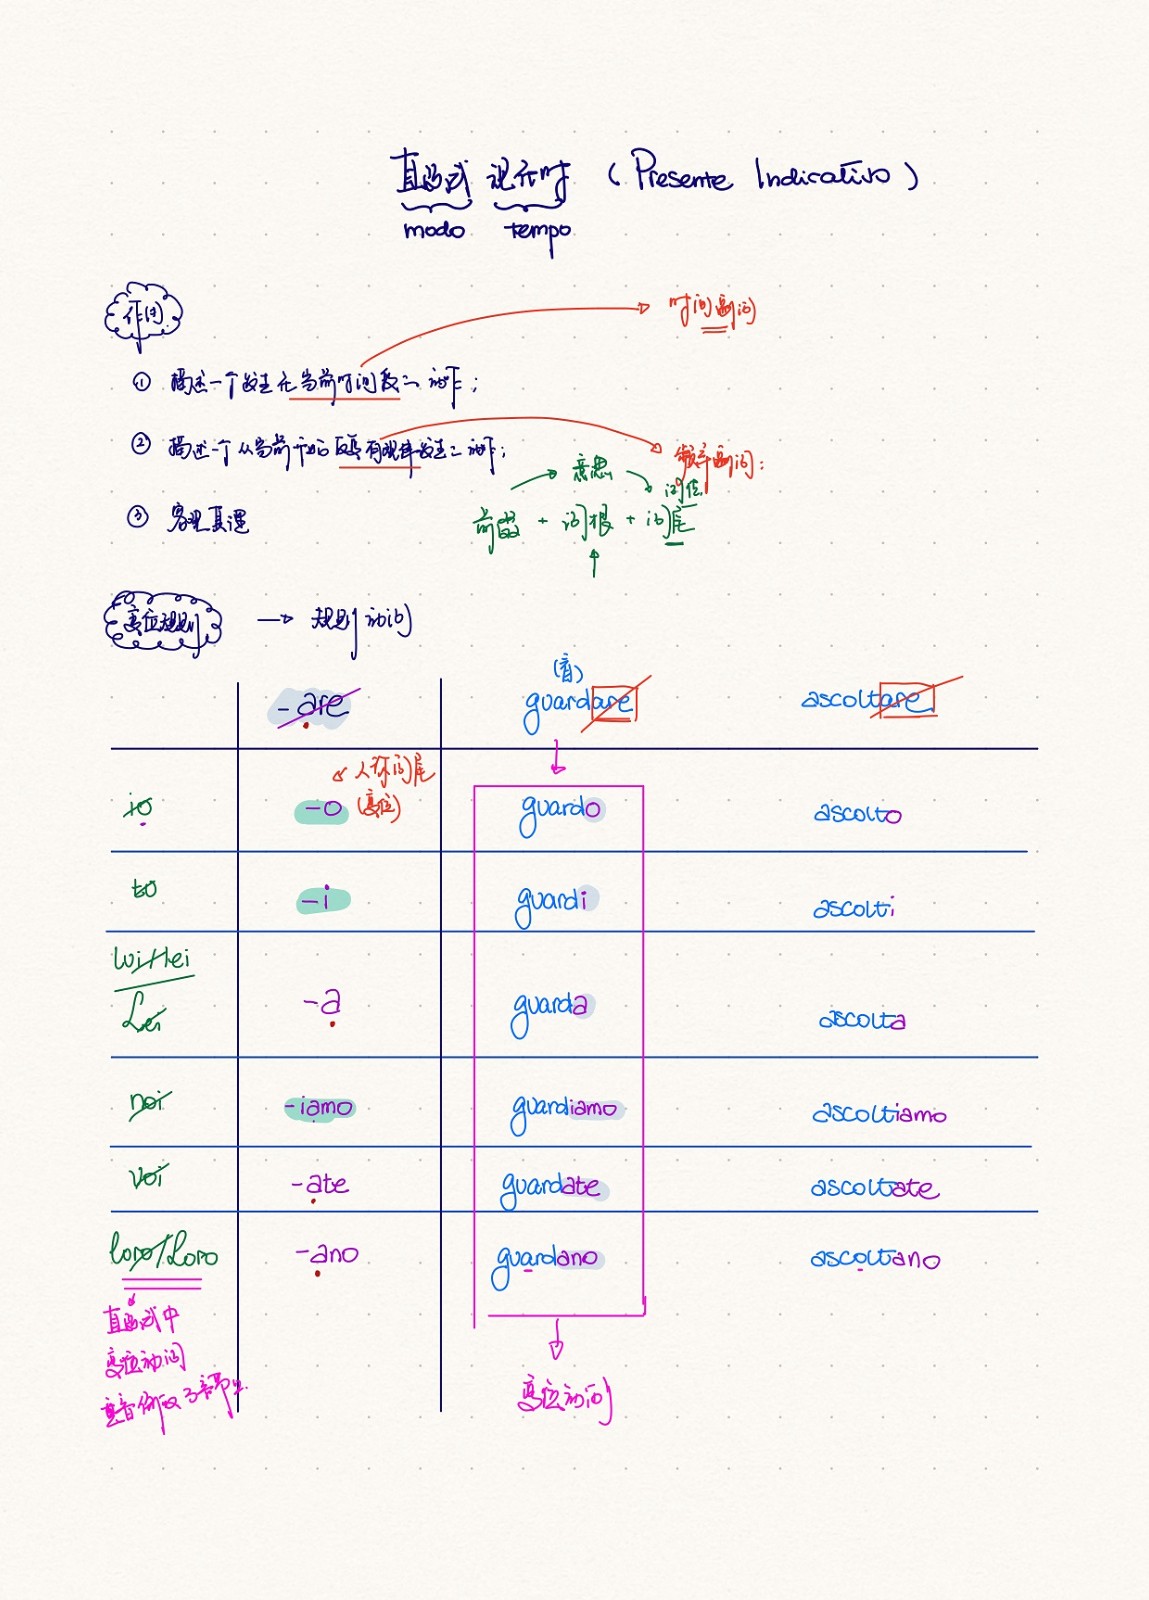 直陈式 现在时 (Presente Indicativo)
modo tempo
作用
时间副词
① 描述一个发生在当前时间段的动作;
② 描述一个从当前开始具有规律发生的动作;
频率副词:
意思
词性
③ 客观真理
前缀 + 词根 + 词尾
变位规则 → 规则动词
-are guardare ascoltare
人称词尾
(变位)
io -o guardo ascolto
tu -i guardi ascolti
lui/lei
Lei -a guarda ascolta
noi -iamo guardiamo ascoltiamo
voi -ate guardate ascoltate
loro/Loro -ano guardano ascoltano
直陈式中
变位动词
重音倒数
变位动词